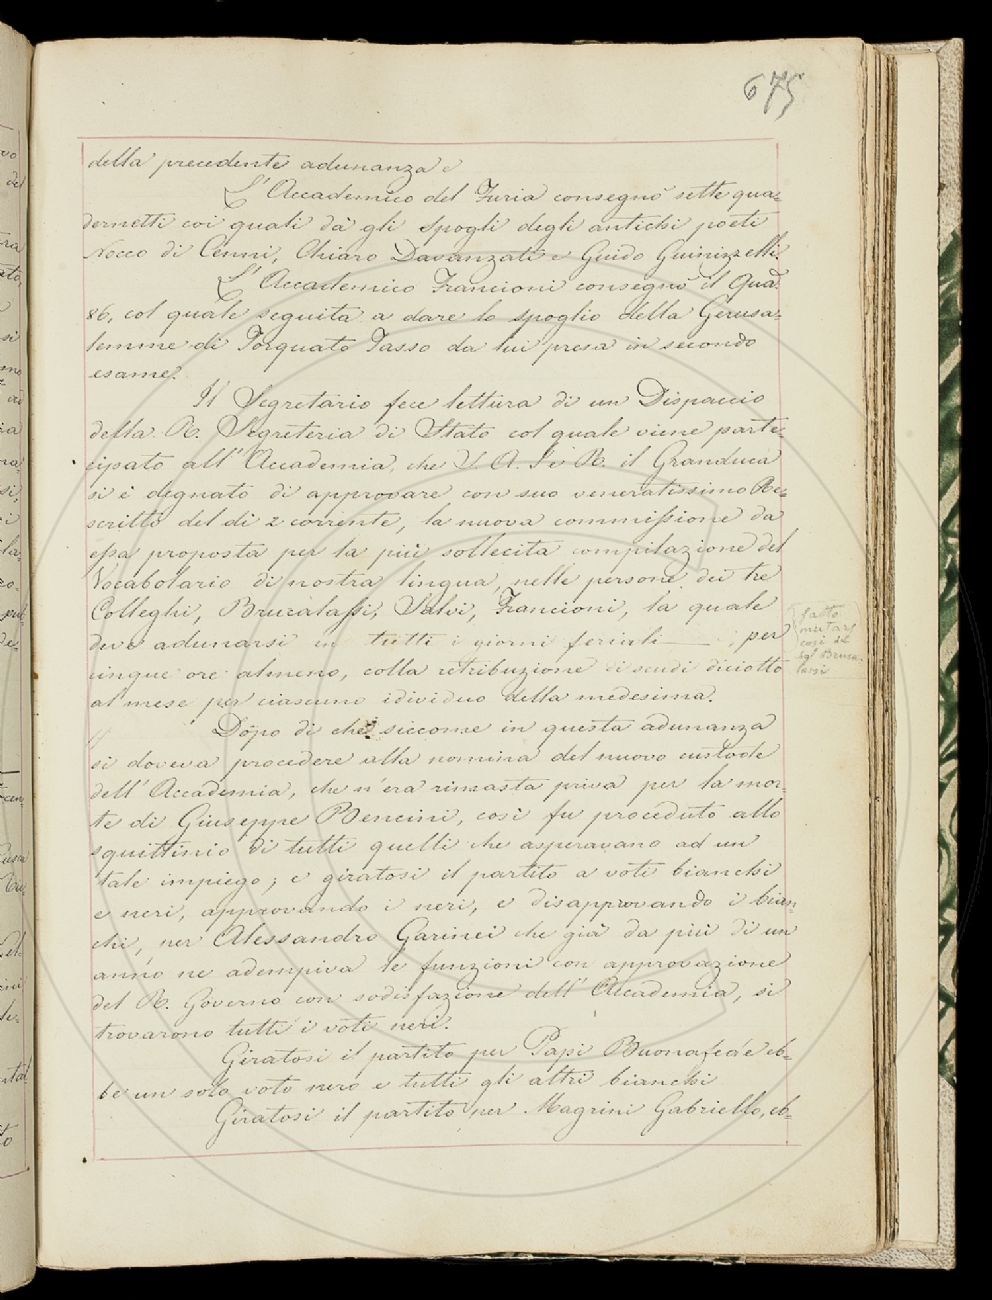 675
della precedente adunanza
L'Accademico del Furia consegnò sette qua-
dernetti coi quali dà gli spogli degli antichi poeti
Nocco di Cenni, Chiaro Davanzati e Guido Guinizzelli.
L'Accademico Francioni consegnò il Qua.
86, col quale seguita a dare lo spoglio della Gerusa-
lemme di Torquato Tasso da lui presa in secondo
esame.
Il Segretario fece lettura di un Dispaccio
della R. Segreteria di Stato col quale viene parte-
cipato all'Accademia, che S. A. I. e R. il Granduca
si è degnato di approvare con suo veneratissimo Re-
scritto del di 2 corrente, la nuova commissione da
essa proposta per la più sollecita compilazione del
Vocabolario di nostra lingua, nelle persone dei tre
Colleghi, Brucalassi, Salvi, Francioni, la quale
deve adunarsi in tutti i giorni feriali per
cinque ore almeno, colla retribuzione di scudi diciotto
al mese per ciascuno idividuo della medesima.
fatto
mutare
così dal
Sgr Bruca-
lassi
Dopo di che siccome in questa adunanza
si doveva procedere alla nomina del nuovo custode
dell'Accademia, che n'era rimasta priva per la mor-
te di Giuseppe Bencini, così fu proceduto allo
squittinio di tutti quelli che asperavano ad un
tale impiego; e giratosi il partito a voti bianchi
e neri, approvando i neri, e disapprovando i bian-
chi, per Alessandro Garinei che già da più di un
anno ne adempiva le funzioni con approvazione
del R. Governo con sodisfazione dell'Accademia, si
trovarono tutti i voti neri.
Giratosi il partito per Papi Buonafede eb-
be un solo voto nero e tutti gli altri bianchi
Giratosi il partito per Magrini Gabriello, eb-